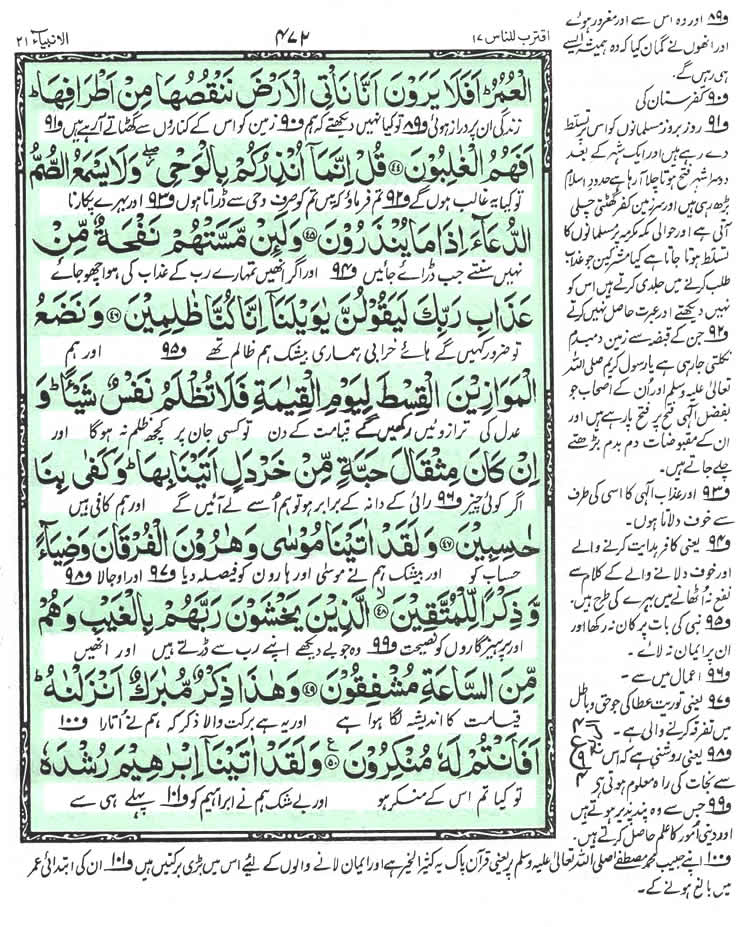 اقترب للناس ۱۷
۴۷۲
الانبیاء ۲۱
الْعُمُرُ ؕ اَفَلَا یَرَوْنَ اَنَّا نَاْتِی الْاَرْضَ نَنْقُصُهَا مِنْ اَطْرَافِهَا ؕ
زندگی ان پر دراز ہوئی و۸۹ تو کیا نہیں دیکھتے کہ ہم و۹۰ زمین کو اس کے کناروں سے گھٹاتے آرہے ہیں و۹۱
اَفَهُمُ الْغٰلِبُوْنَ ﴿۴۴﴾ قُلْ اِنَّمَاۤ اُنْذِرُكُمْ بِالْوَحْیِ ۖ٘ وَ لَا یَسْمَعُ الصُّمُّ
تو کیا یہ غالب ہوں گے و۹۲ تم فرماؤ کہ میں تم کو صرف وحی سے ڈراتا ہوں و۹۳ اور بہرے پکارنا
الدُّعَآءَ اِذَا مَا یُنْذَرُوْنَ ﴿۴۵﴾ وَ لَىِٕنْ مَّسَّتْهُمْ نَفْحَةٌ مِّنْ
نہیں سنتے جب ڈرائے جائیں و۹۴ اور اگر انھیں تمہارے رب کے عذاب کی ہوا چھو جائے
عَذَابِ رَبِّكَ لَیَقُوْلُنَّ یٰوَیْلَنَاۤ اِنَّا كُنَّا ظٰلِمِیْنَ ﴿۴۶﴾ وَ نَضَعُ
تو ضرور کہیں گے ہائے خرابی ہماری بیشک ہم ظالم تھے و۹۵ اور ہم
الْمَوَازِیْنَ الْقِسْطَ لِیَوْمِ الْقِیٰمَةِ فَلَا تُظْلَمُ نَفْسٌ شَیْــٴًـا ؕ وَ
عدل کی ترازوئیں رکھیں گے قیامت کے دن تو کسی جان پر کچھ ظلم نہ ہوگا اور
اِنْ كَانَ مِثْقَالَ حَبَّةٍ مِّنْ خَرْدَلٍ اَتَیْنَا بِهَا ؕ وَ كَفٰی بِنَا
اگر کوئی چیز و۹۶ رائی کے دانہ کے برابر ہو تو ہم اُسے لے آئیں گے اور ہم کافی ہیں
حٰسِبِیْنَ ﴿۴۷﴾ وَ لَقَدْ اٰتَیْنَا مُوْسٰی وَ هٰرُوْنَ الْفُرْقَانَ وَ ضِیَآءً
حساب کو اور بیشک ہم نے موسیٰ اور ہارون کو فیصلہ دیا و۹۷ اور اوجالا و۹۸
وَّ ذِكْرًا لِّلْمُتَّقِیْنَ ﴿۴۸﴾ الَّذِیْنَ یَخْشَوْنَ رَبَّهُمْ بِالْغَیْبِ وَ هُمْ
اور پرہیزگاروں کو نصیحت و۹۹ وہ جو بے دیکھے اپنے رب سے ڈرتے ہیں اور انھیں
مِّنَ السَّاعَةِ مُشْفِقُوْنَ ﴿۴۹﴾ وَ هٰذَا ذِكْرٌ مُّبٰرَكٌ اَنْزَلْنٰهُ ؕ
قیامت کا اندیشہ لگا ہوا ہے اور یہ ہے برکت والا ذکر کہ ہم نے اُتارا و۱۰۰
اَفَاَنْتُمْ لَهٗ مُنْكِرُوْنَ ﴿۵۰﴾ وَ لَقَدْ اٰتَیْنَاۤ اِبْرٰهِیْمَ رُشْدَهٗ
تو کیا تم اس کے منکر ہو اور بے شک ہم نے ابراہیم کو و۱۰۱ پہلے ہی سے
و۸۹ اور وہ اس سے اور مغرور ہوئے
اور انھوں نے گمان کیا کہ وہ ہمیشہ ایسے
ہی رہیں گے۔
و۹۰ کفرستان کی
و۹۱ روز بروز مسلمانوں کو اس پر تسلط
دے رہے ہیں اور ایک شہر کے بعد
دوسرا شہر فتح ہوتا چلا آرہا ہے حدود اسلام
بڑھ رہی ہیں اور سرزمین کفر گھٹتی چلی
آتی ہے اور حوالی مکہ مکرمہ پر مسلمانوں کا
تسلط ہوتا جاتا ہے کیا مشرکین جو عذاب
طلب کرنے میں جلدی کرتے ہیں اس کو
نہیں دیکھتے اور عبرت حاصل نہیں کرتے
و۹۲ جن کے قبضہ سے زمین دمبدم
نکلتی جارہی ہے یا رسول کریم صلی اللہ
تعالیٰ علیہ وسلم اور اُن کے اصحاب جو
بفضل الٰہی فتح پر فتح پا رہے ہیں اور
ان کے مقبوضات دم بدم بڑھتے
چلے جاتے ہیں۔
و۹۳ اور عذاب الٰہی کا اسی کی طرف
سے خوف دلاتا ہوں۔
و۹۴ یعنی کافر ہدایت کرنے والے
اور خوف دلانے والے کے کلام سے
نفع نہ اُٹھانے میں بہرے کی طرح ہیں۔
و۹۵ نبی کی بات پر کان نہ رکھا اور
ان پر ایمان نہ لائے۔
و۹۶ اعمال میں سے۔
و۹۷ یعنی توریت عطا کی جو حق و باطل
میں تفرقہ کرنے والی ہے۔
و۹۸ یعنی روشنی ہے کہ اس
سے نجات کی راہ معلوم ہوتی ہے
و۹۹ جس سے وہ پندپذیر ہوتے ہیں
اور دینی اُمور کا علم حاصل کرتے ہیں۔
و۱۰۰ اپنے حبیب محمد مصطفےٰ صلی اللہ تعالیٰ علیہ وسلم پر یعنی قرآن پاک یہ کثیر الخیر ہے اور ایمان لانے والوں کے لئے اس میں بڑی برکتیں ہیں و۱۰۱ ان کی ابتدائی عمر
میں بالغ ہونے کے۔